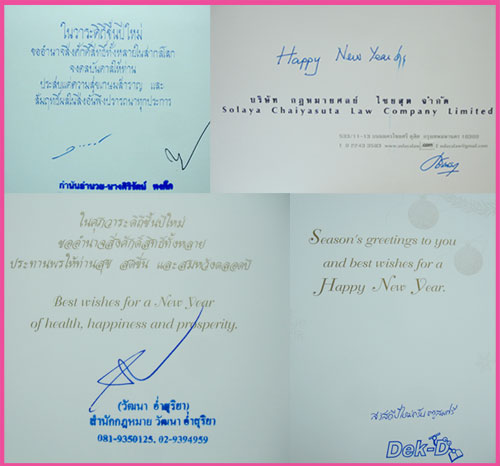 ในวาระดิถีขึ้นปีใหม่
ขออำนาจสิ่งศักดิ์สิทธิ์ทั้งหลายในสากลโลก
จงดลบันดาลให้ท่าน
ประสบแต่ความสุขเกษมสำราญ และ
สัมฤทธิ์ผลในสิ่งอันพึงปรารถนาทุกประการ
กำนันอำนวย-นางศิริรัตน์
Happy New Year
บริษัท กฎหมายศลย์ ไชยสุต จำกัด
Solaya Chaiyasuta Law Company Limited
ในศุภวาระดิถีขึ้นปีใหม่
ขออำนาจสิ่งศักดิ์สิทธิ์ทั้งหลาย
ประทานพรให้ท่านสุข สดชื่น และสมหวังตลอดปี
Best wishes for a New Year
of health, happiness and prosperity.
(วัฒนา อ่ำสุริยา)
สำนักกฎหมาย วัฒนา อ่ำสุริยา
081-9350125, 02-9394959
Season's greetings to you
and best wishes for a
Happy New Year.
Dek-D